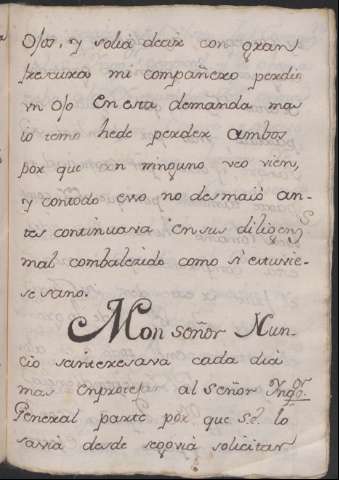 Ojos, y solia decir con gran
frescura mi compañero perdio
vn ojo en esta demanda ma
io temo hede perder ambos
por que con ninguno veo vien,
y contodo evo no desmaió an-
tes continuava en sus diligens
mal combalezido como si estuvie-
se sano.
Mon señor Nun-
cio se interesava cada dia
mas enprotejar al señor Inqor.
General parte por que Se. lo
savia desde segovia solicitar